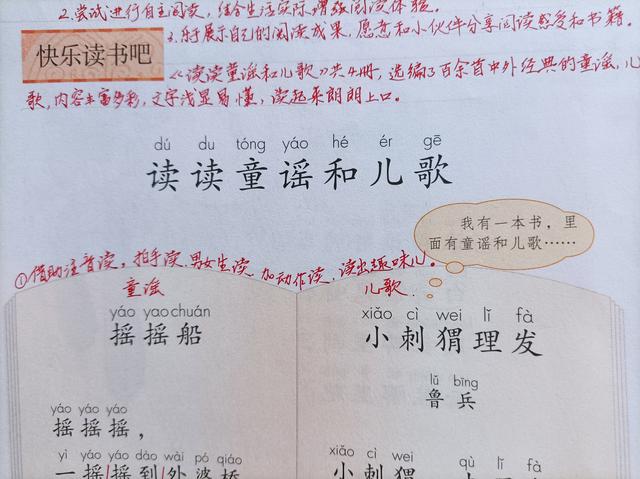 2.尝试进行自主阅读，结合生活实际增强阅读体验。
3.能展示自己的阅读成果，愿意和小伙伴分享阅读感受和书籍。
快乐读书吧
《读读童谣和儿歌》共4册，选编了百余首中外经典的童谣、儿
歌，内容丰富多彩，文字浅显易懂，读起来朗朗上口。
dú du tóng yáo hé ér gē
读读童谣和儿歌
我有一本书，里
面有童谣和儿歌……
①借助注音读，拍手读、男女生读、加动作读，读出趣味儿。
童谣
yáo yao chuán
摇摇船
yáo yáo yáo
摇摇摇，
yì yáo yáo dào wài pó qiáo
一摇摇到外婆桥
儿歌
xiǎo cì wei lǐ fà
小刺猬理发
lǔ bīng
鲁兵
xiǎo cì wei qù lǐ
小刺猬